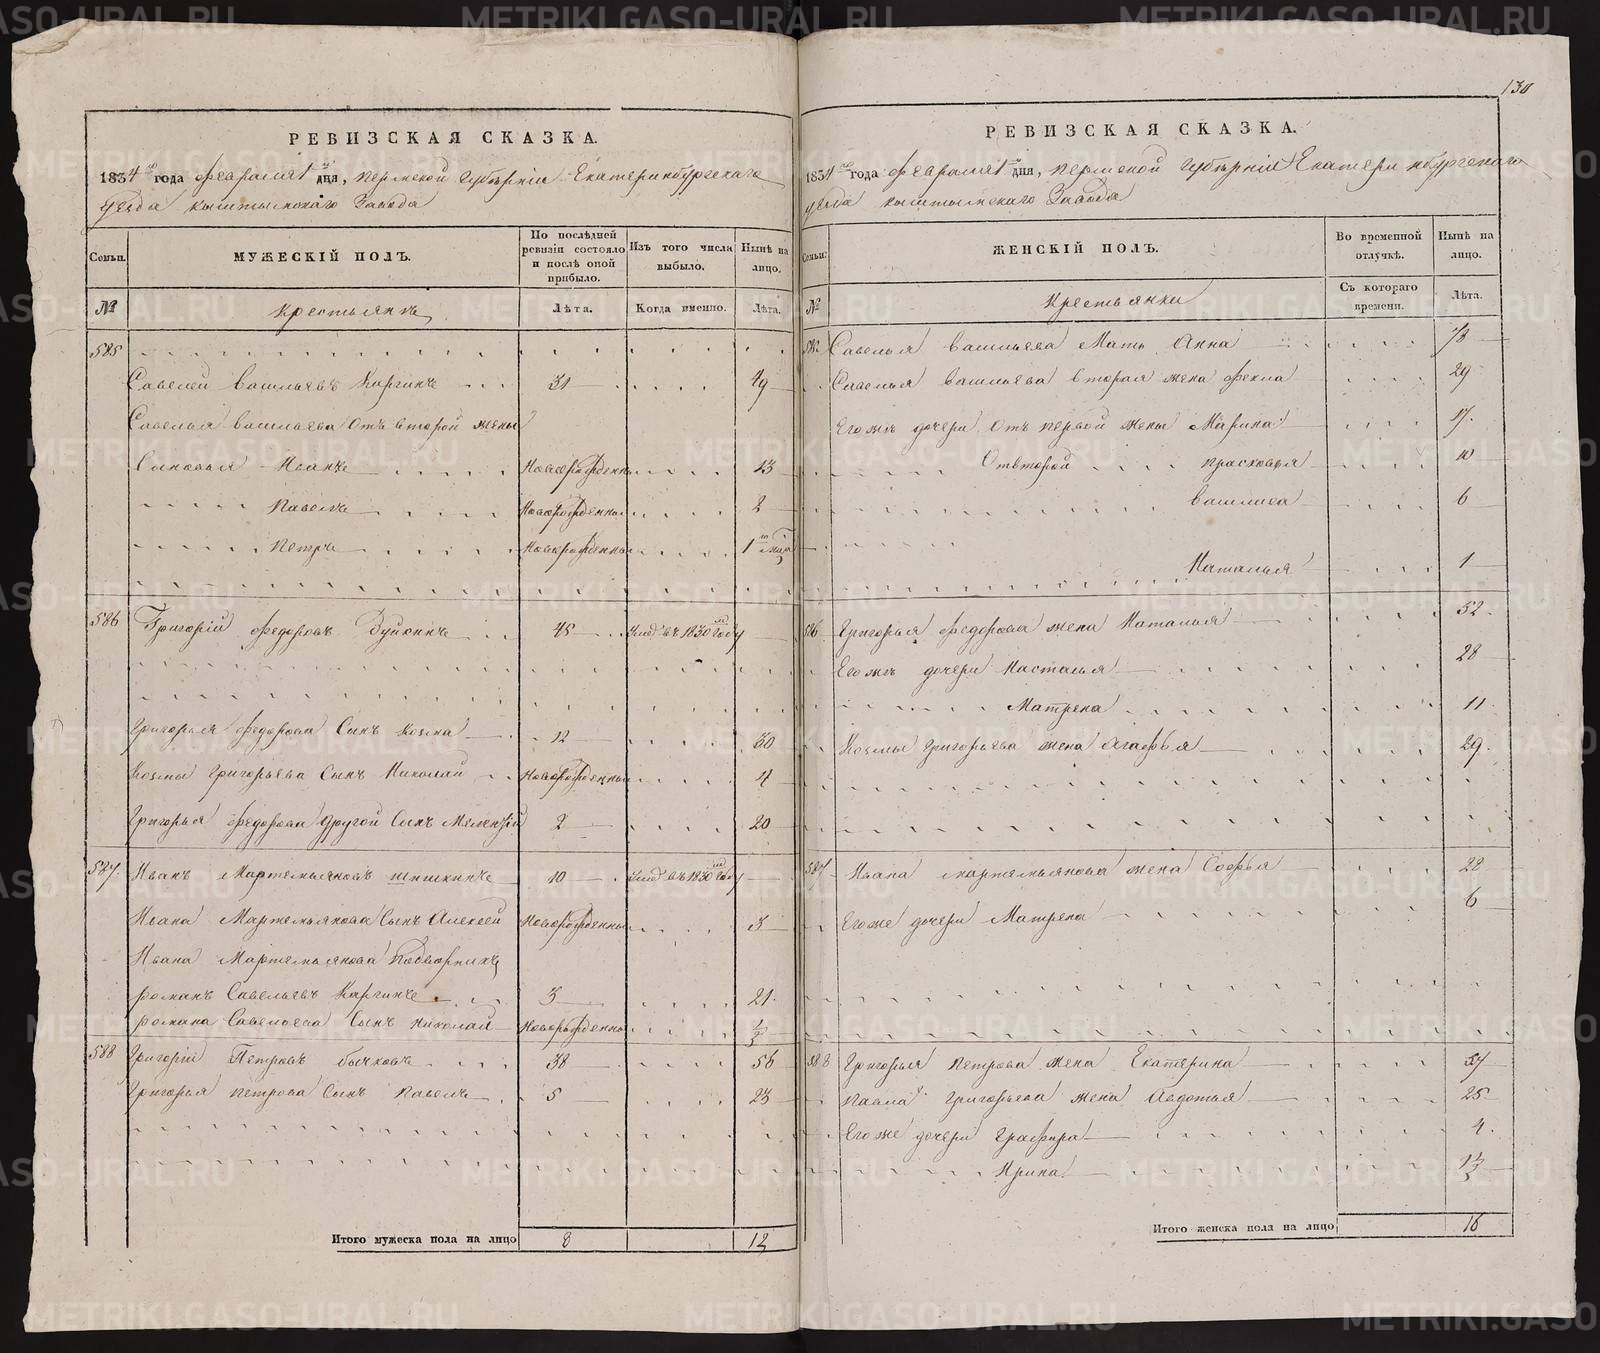 130
РЕВИЗСКАЯ СКАЗКА.
1834го года февраля 1 дня, Пермской Губерніи Екатеринбургскаго
уезда Кыштымскаго Завода
Семьи.
МУЖЕСКІЙ ПОЛЪ.
По послѣдней ревизіи состояло и послѣ оной прибыло.
Изъ того числа выбыло.
Нынѣ на лицо.
№
Крестьянъ
Лѣта.
Когда именно.
Лѣта.
585
Савелей Васильевъ Каргинъ 31 49
Савелья Васильева отъ второй жены
Сыновья Иванъ Новорожденны 13
Павелъ Новорожденны 2
Петръ Новорожденны 1
586 Григорій Федоровъ 45 Умеръ въ 1830 Году
Григорья Федорова Сынъ Козма 12 30
Козмы Григорьева Сынъ Николай Новорожденны 4
Григорья Федорова другой Сынъ 2 20
587. Иванъ Мартемьяновъ Шишкинъ 10 Умеръ въ 1830 Году
Ивана Мартемьянова Сынъ Алексей Новорожденны 3
Ивана Мартемьянова Подворникъ
Романъ Савельевъ Каргинъ 3 21
Романа Савельева Сынъ Николай Новорожденны 1/3
588 Григорій Петровъ Бычковъ 38 56
Григорья Петрова Сынъ Павелъ 5 23
Итого мужеска пола на лицо 8 12
РЕВИЗСКАЯ СКАЗКА.
1834го года февраля 1 дня, Пермской Губерніи Екатеринбургскаго
уезда Кыштымскаго Завода
Семьи.
ЖЕНСКІЙ ПОЛЪ.
Во временной отлучкѣ.
Нынѣ на лицо.
№
Крестьянки
Съ котораго времени.
Лѣта.
585 Савелья Васильева Мать Анна 78
Савелья Васильева вторая жена Фекла 29
Егожъ дочери отъ первой жены Марина 17
Отвторой Прасковья 10
Василиса 6
Наталья 1
586 Григорья Федорова жена Наталья 52
Егожъ дочери Настасья 28
Матрена 11
Козмы Григорьева жена Агафья 29
587 Ивана Мартемьянова жена Софья 22
Егоже дочери Матрена 6
588 Григорья Петрова жена Екатерина 57
Павла Григорьева жена Авдотья 25
Егоже дочери Графира 4
Ирина 1/3
Итого женска пола на лицо 16
METRIKI.GASO-URAL.RU